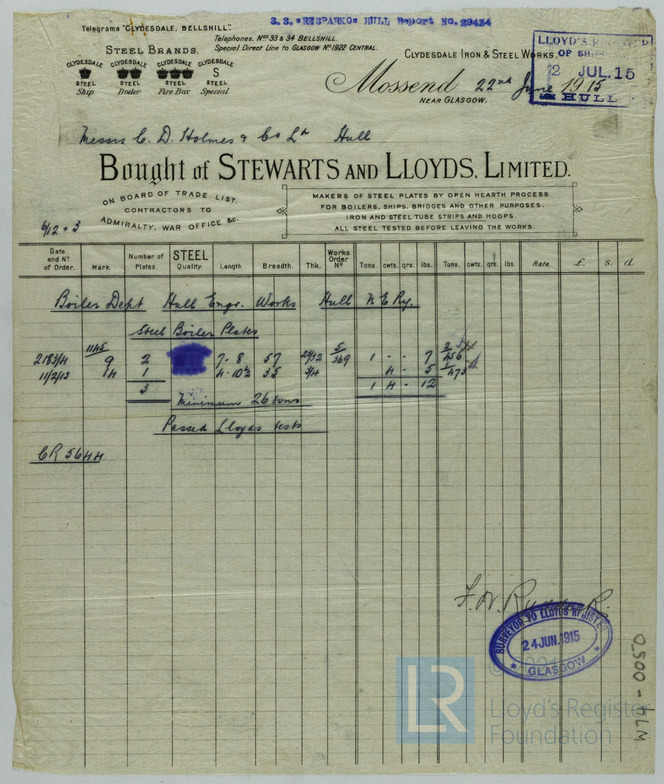 S.S. "RESPARKO" HULL Report No. 29434
Telegrams "CLYDESDALE, BELLSHILL".
Telephones. Nos 33 & 34 BELLSHILL.
Special Direct Line to GLASGOW No 1922 CENTRAL.
STEEL BRANDS.
CLYDESDALE CLYDESDALE CLYDESDALE CLYDESDALE
S
STEEL STEEL STEEL STEEL
Ship Boiler Fire Box Special
CLYDESDALE IRON & STEEL WORKS,
Mossend 22nd June 1915
NEAR GLASGOW.
LLOYD'S REGISTER
OF SHIPPING
2 JUL. 15
HULL
Messrs C. D. Holmes & Co Ld Hull
Bought of STEWARTS AND LLOYDS, LIMITED.
ON BOARD OF TRADE LIST.
CONTRACTORS TO
ADMIRALTY, WAR OFFICE &c.
MAKERS OF STEEL PLATES BY OPEN HEARTH PROCESS
FOR BOILERS, SHIPS, BRIDGES AND OTHER PURPOSES.
IRON AND STEEL TUBE STRIPS AND HOOPS.
ALL STEEL TESTED BEFORE LEAVING THE WORKS.
Date and No of Order. Mark. Number of Plates. STEEL Quality. Length. Breadth. Thk. Works Order No Tons. cwts. qrs. lbs. Tons. cwts. qrs. lbs. Rate. £. s. d.
Boiler Dept Hull Engr. Works Hull N E Ry.
Steel Boiler Plates
1145
9 2 7-8 57 29/32 5/369 1 - - 7
11/2/15 14 1 4-10½ 35 3/4 4 - 5
3 1 4 - 12
Minimum 26 tons
Passed Lloyds tests
CR 5644
SURVEYOR TO LLOYDS REGISTER
24 JUN. 1915
GLASGOW
LR
Lloyd's Register
Foundation